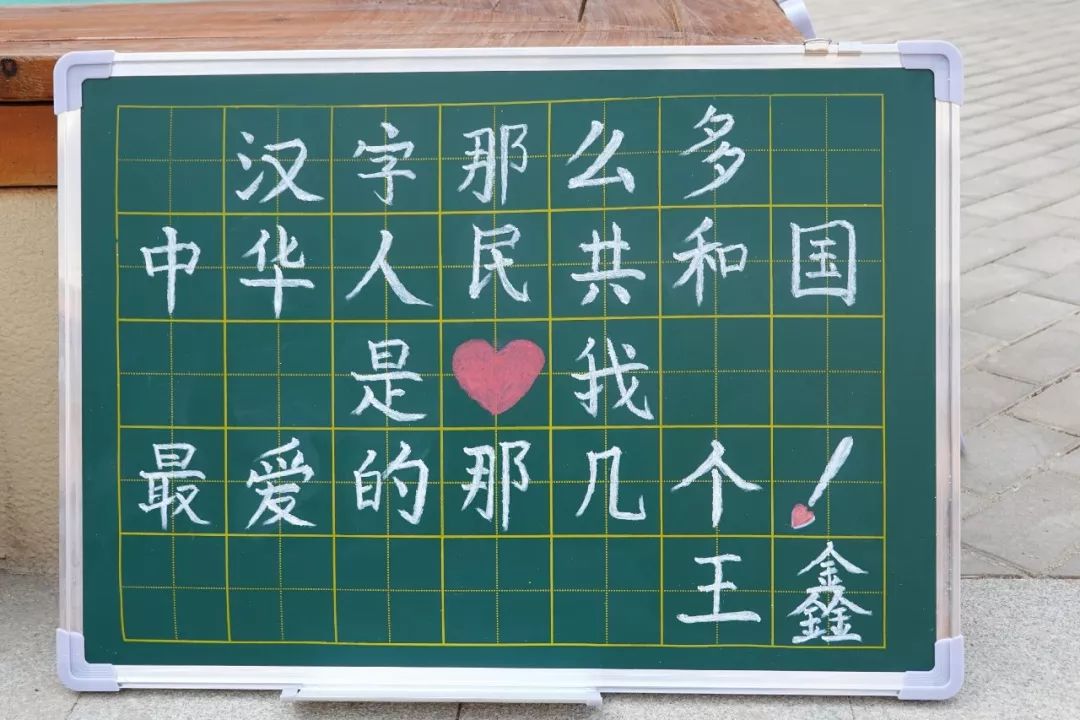 汉字那么多
中华人民共和国
是❤我
最爱的那几个！
王鑫